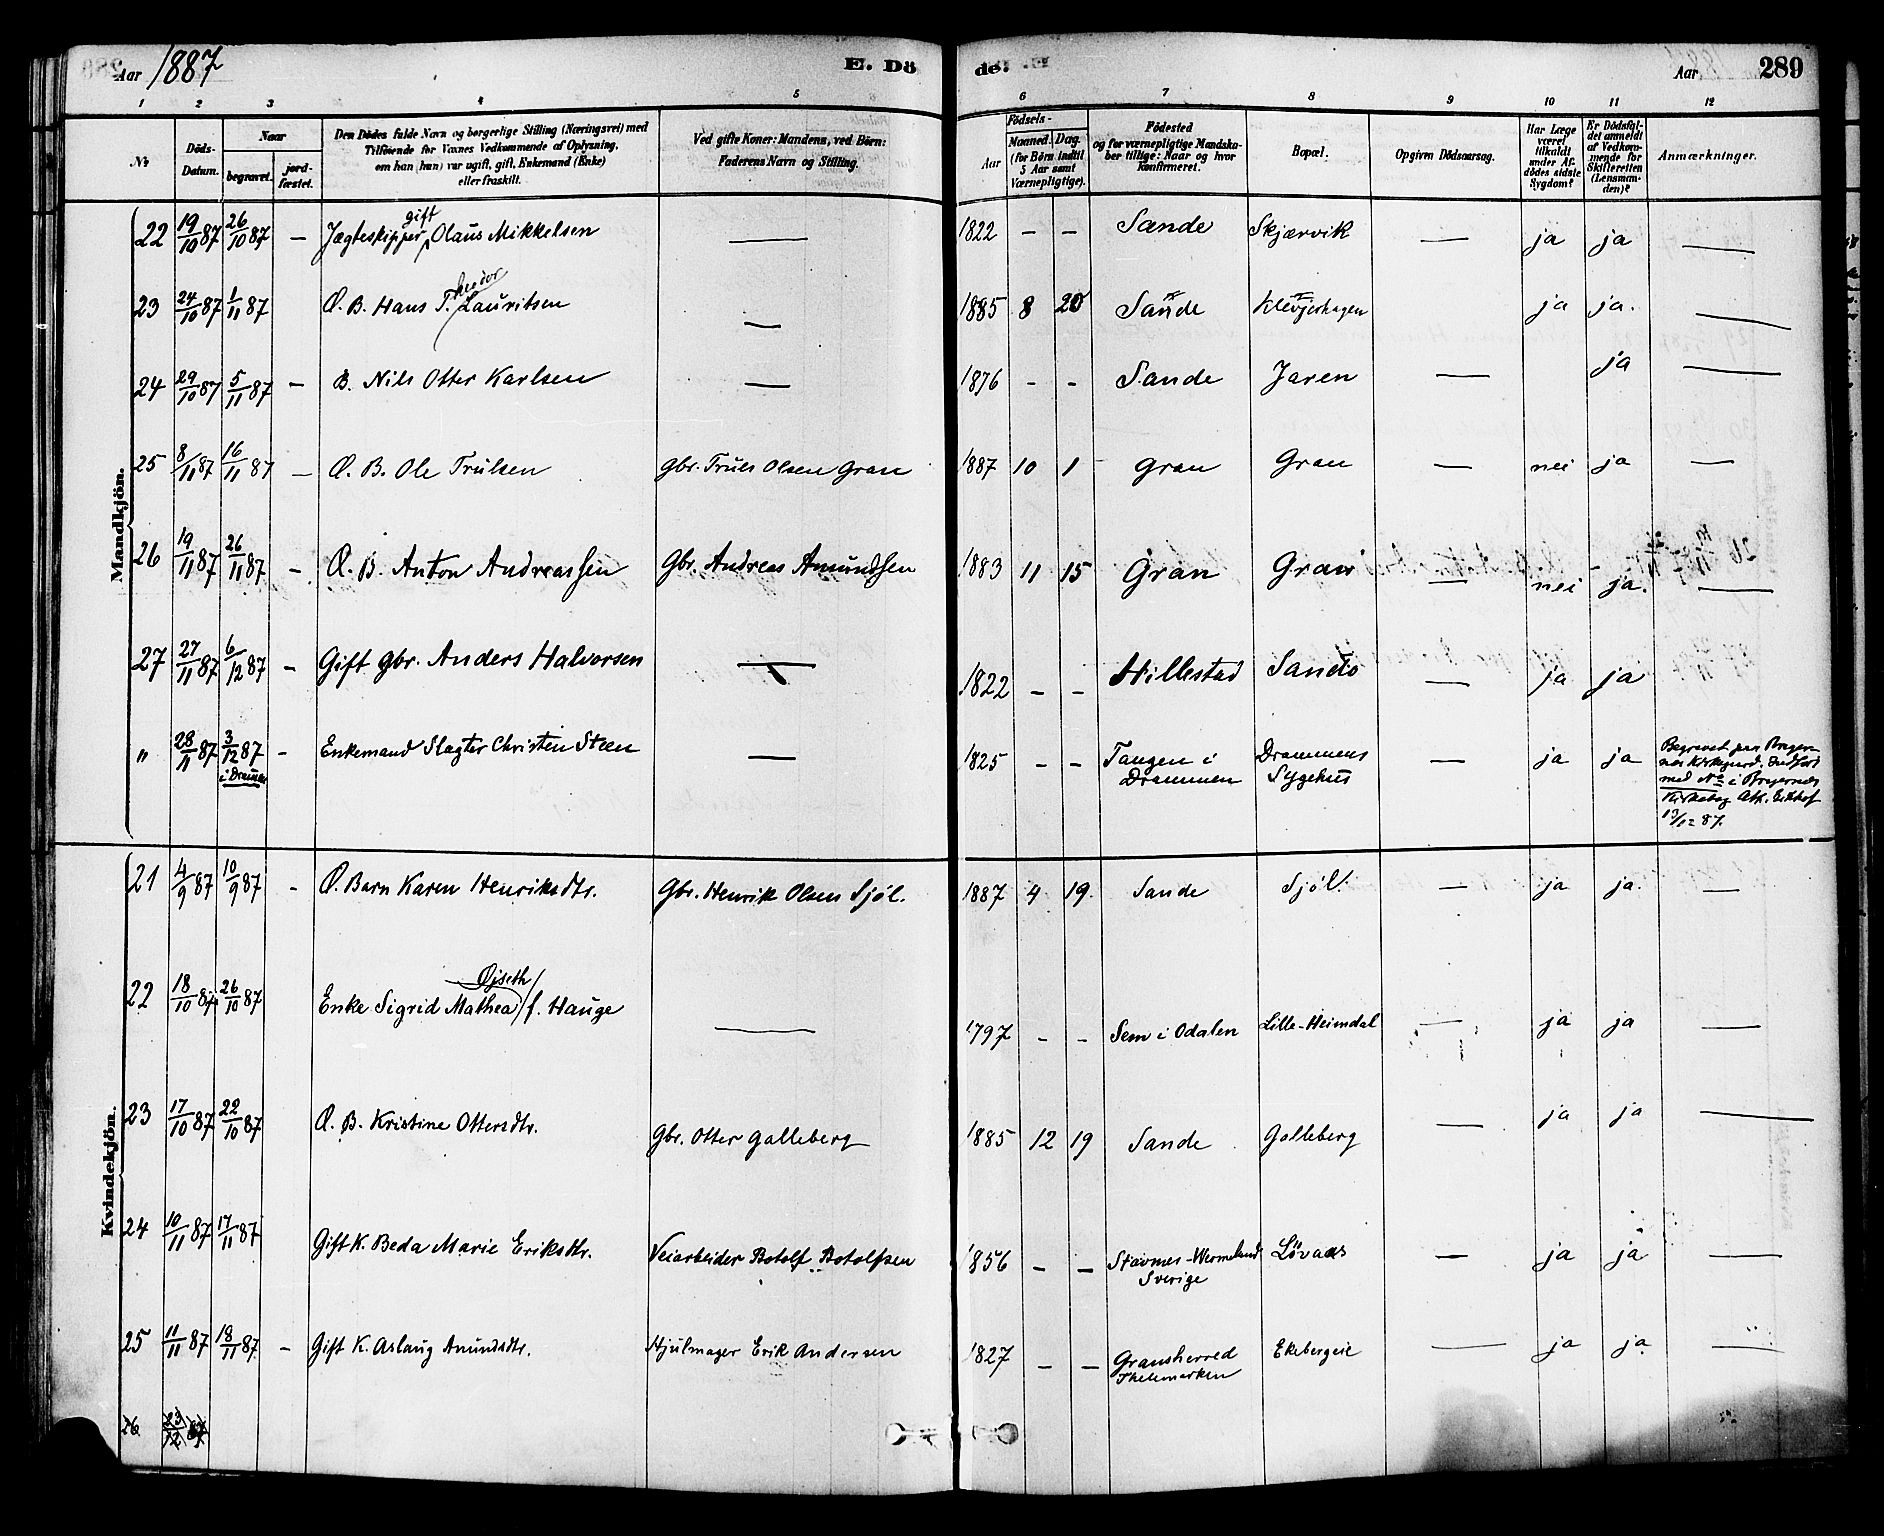 Aar 1887 E. Döde. Aar 289
1 2 3 4 5 6 7 8 9 10 11 12
No Döds-Datum. Naar begravet. jord-fæstet. Den Dödes fulde Navn og borgerlige Stilling (Næringsvei) med Tilföiende for Voxnes Vedkommende af Oplysning, om han (hun) var ugift, gift, Enkemand (Enke) eller fraskilt. Ved gifte Koner: Mandens, ved Börn: Faderens Navn og Stilling. Födsels- Aar Maaned. Dag. (for Börn indtil 5 Aar samt Værnepligtige). Födested og for værnepligtige Mandskaber tillige: Naar og hvor Konfirmeret. Bopæl. Opgiven Dödsaarsag. Har Læge været tilkaldt under Afdödes sidste Sygdom? Er Dödsfaldet anmeldt af Vedkommende for Skifteretten (Lensmanden)? Anmærkninger.
Mandkjön.
22 19/10 87 26/10 87 — Jægteskipper gift Olaus Mikkelsen — 1822 - - Sande Skjærvik — ja ja —
23 24/10 87 1/11 87 Æ. B. Hans Theodor Lauritsen — 1885 8 20 Sande Klevjerhagen ja ja. —
24 29/10 87 5/11 87 — B. Nils Otter Karlsen — 1876 - - Sande Jaren — ja —
25 8/11 87 16/11 87 — Æ. B. Ole Trulsen Gbr. Truls Olsen Gran 1887 10 1 Gran Gran — nei ja —
26 19/11 87 26/11 87 — Æ. B. Anton Andreassen Gbr. Andreas Amundsen 1883 11 15 Gran Gran — nei ja. —
27 27/11 87 6/12 87 — Gift gbr. Anders Halvorsen — 1822 - - Hillestad Sando — ja ja
" 28/11 87 3/12 87 i Drammen — Enkemand Slagter Christen Steen — 1825 - - Tangen i Drammen Drammens Sygehus ja ja Begravet paa Bragernes Kirkegaard. Indført med No i Bragernes Kirkebog Att. 13/12 87.
Kvindekjön.
21 4/9 87 10/9 87 — Æ. Barn Karen Henriksdtr. Gbr. Henrik Olsen Sjøl. 1887 4 19. Sande Sjøl. — ja ja. —
22 18/10 87 26/10 87 Enke Sigrid Mathea Øjseth f. Hauge — 1797 - - Sem i Odalen Lille-Heimdal — ja ja —
23 17/10 87 22/10 87 Æ. B. Kristine Ottersdtr. Gbr. Otter Galleberg 1885 12 19 Sande Galleberg — ja ja —
24 10/11 87 17/11 87 Gift K. Beda Marie Eriksdtr. Veiarbeider Botolf Botolfsen 1856 - - Stavnes-Wermeland Sverige Lövaas — ja ja —
25 11/11 87 18/11 87. — Gift K. Aslaug Amundsdtr. Hjulmager Erik Andersen 1827 - - Gransherred Thelemarken Ekebergeie — ja ja —
26 23/12 87